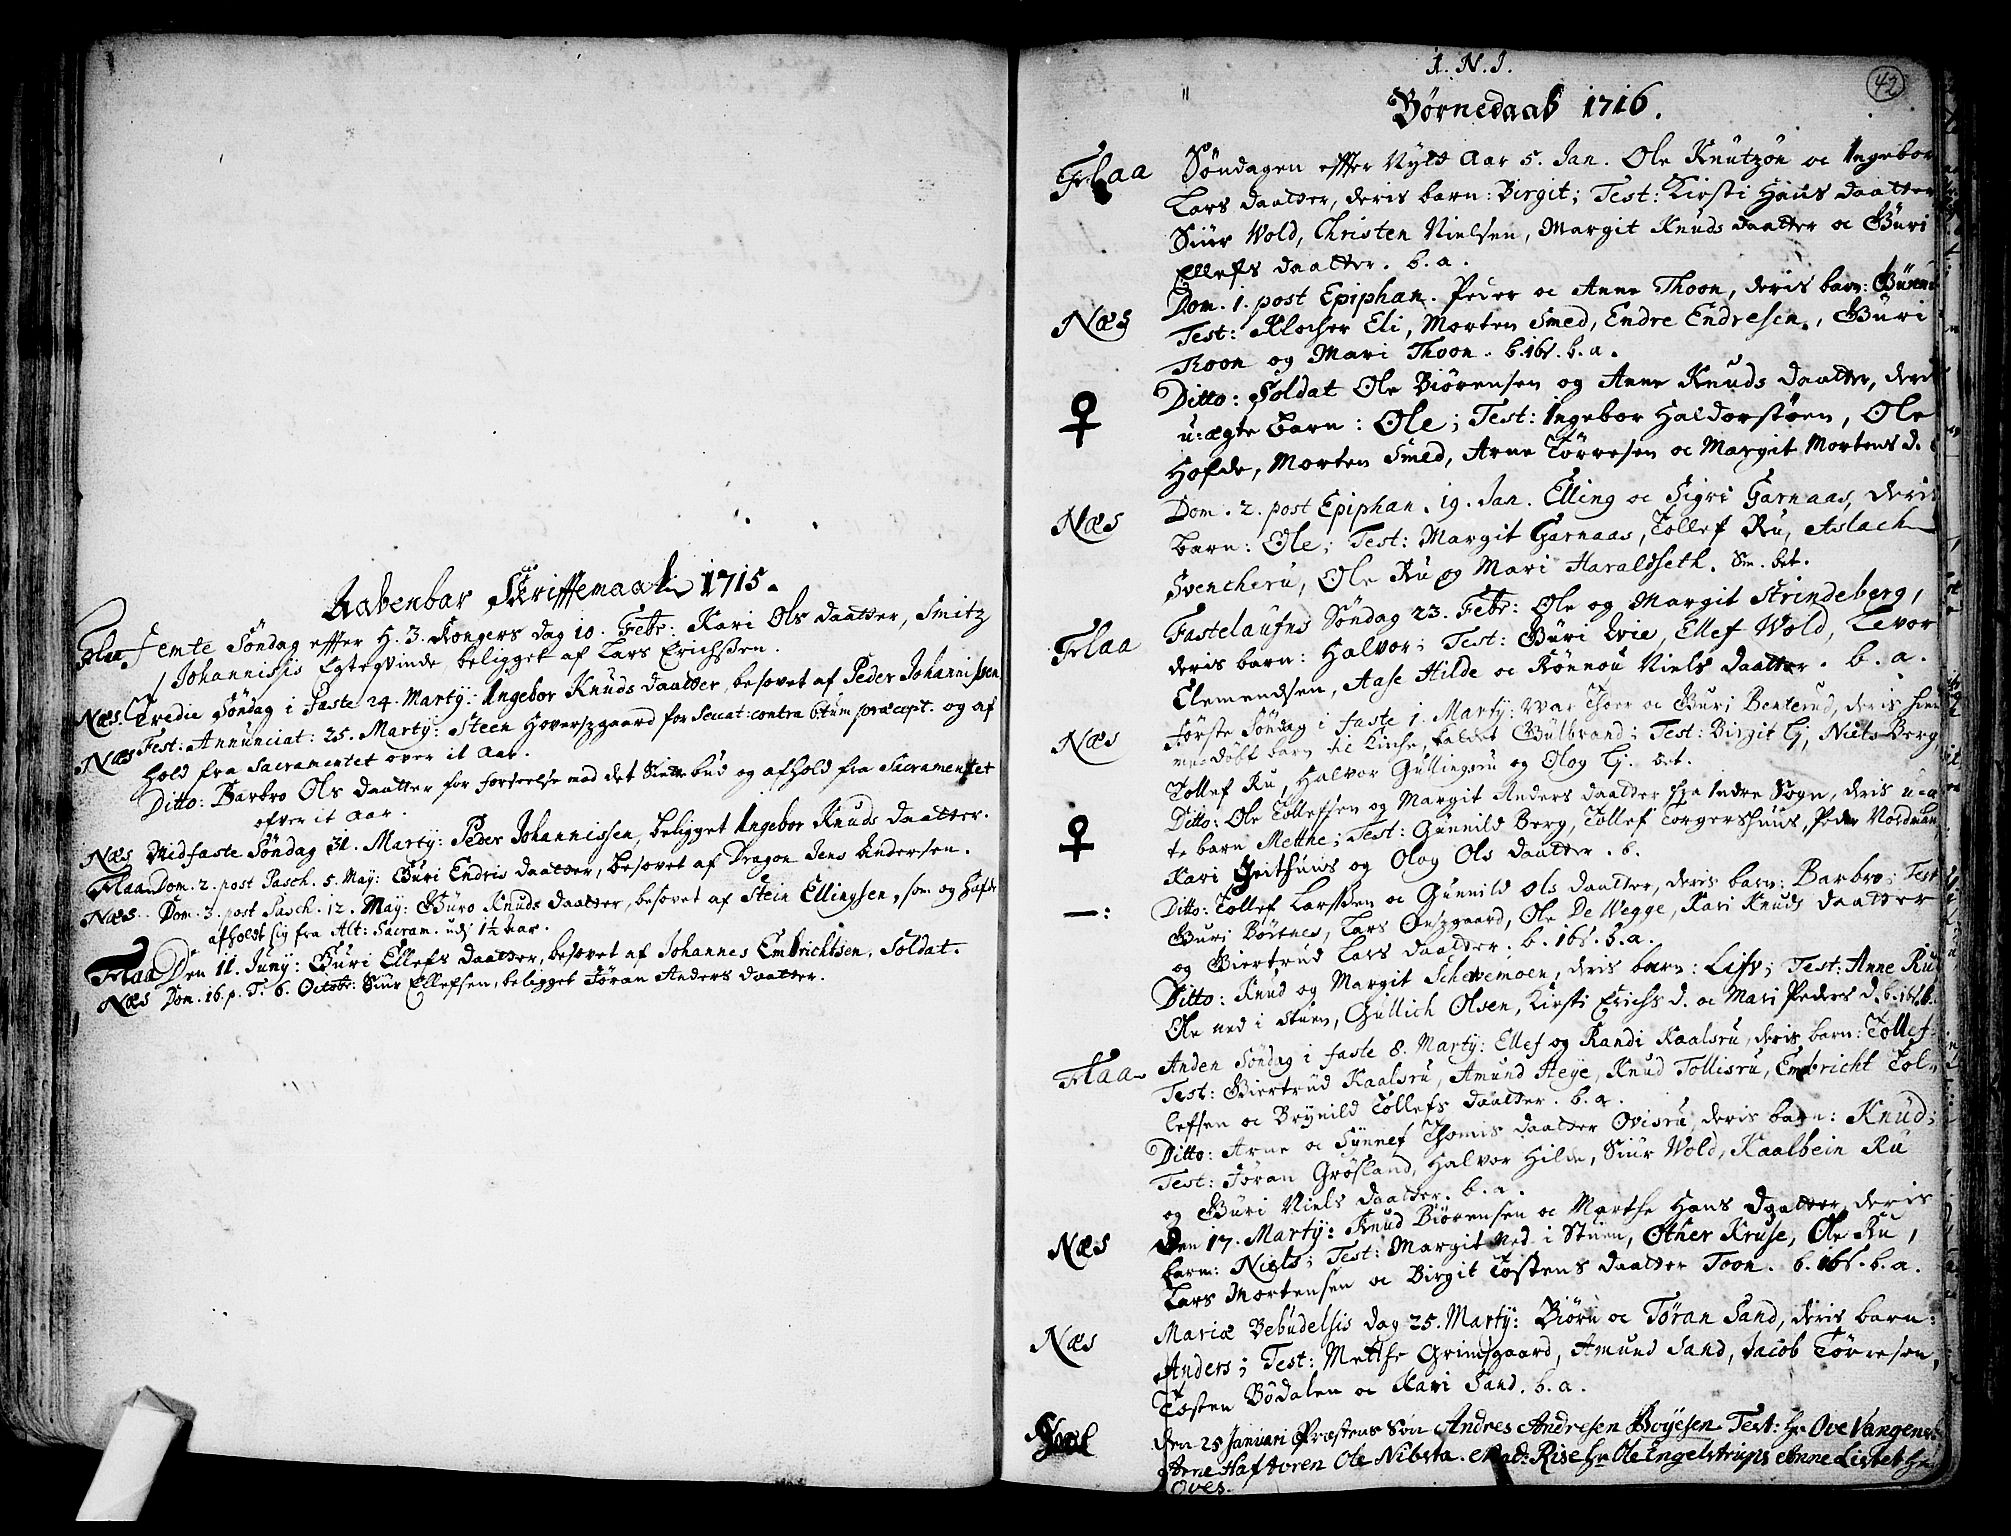 Aabenbar Skrifftemaal 1715.
Flaa Femte Søndag effter H. 3. Kongers dag 10. Febr: Kari Ols daatter, Smitz
Johannissis Egteqvinde beligget af Lars Erichssen.
Næs. Tredie Søndag i Faste 24. Martij: Ingebor Knuds daatter, besovet af Peder Johannissen
Næs Fest: Annunciat: 25. Martij: Steen Hoverszgaard for contra 6tum præcept. og af
hold fra Sacramentet over it Aar.
Ditto: Barbro Ols daatter for forseelse mod det Siette bud og afhold fra Sacramentet
ofver it Aar.
Næs Midfaste Søndag 31. Martij: Peder Johannissen, beligget Ingebor Knuds daatter.
Flaa Dom. 2. post Pasch. 5. Maij: Guri Endris daatter, besovet af Dragon Jens Andersen.
Næs Dom. 3. post Pasch. 12. Maij: Guro Knuds daatter, besovet af Stein Ellingsen, som og hafde
afholdt sig fra Alt: Sacram. udj 1½ aar.
Flaa Den 11. Junij: Guri Ellefs daatter, besovet af Johannes Embrichtsen. Soldat.
Næs Dom. 16. p. T. 6. Octobr: Siur Ellefsen, beligget Jøran Anders daatter.
42
I. N. J.
Børnedaab 1716.
Flaa Søndagen effter Nytt Aar 5. Jan. Ole Knutzøn oc Ingebor
Lars daatter, deris barn: Birgit; Test: Kirsti Hans daatter
Siur Wold, Christen Nielsen, Margit Knuds daatter oc Guri
Ellefs daatter. b. a.
Næs Dom. 1. post Epiphan. Peder oc Anne Thoon, deris barn:
Test: Klocker Eli, Morten Smed, Endre Endresen, Guri
Thoon og Mari Thoon. b. 16s. b. a.
♀ Ditto: Soldat Ole Biørensen og Anne Knuds daatter, deris
u-ægte barn: Ole; Test: Ingebor Haldorstøen, Ole
Hofde, Morten Smed, Arne Tørresen oc Margit Mortens d.
Næs Dom. 2. post Epiphan. 19. Jan. Elling oc Sigri Garnaas, deris
barn: Ole; Test: Margit Garnaas, Tollef Ru, Aslach
Svencheru, Ole Ru og Mari Haraldseth. Sm. bet.
Flaa Fastelaufns Søndag 23. Febr: Ole og Margit Strindeberg,
deris barn: Halvor; Test: Guri Wie, Ellef Wold, Levor
Clemendsen, Aase Hilde oc Rønnou Niels daatter. b. a.
Næs Første Søndag i faste 1. Martij: war Thoer oc Guri Benterud, deris hiem
medøbt barn til Kirche, kaldet Gulbrand; Test: Birgit Lj, Niels Berg,
Tollef Ru, Halvor Gullingsru og Olog Lj. bet.
♀ Ditto: Ole Tollefsen og Margit Anders daatter fra Indre Sogn, deris uæg
te barn Methe; Test: Gunnild Berg, Tollef Torgershuus, Peder Nordman
Kari Geithuus og Olog Ols daatter. b.
—: Ditto: Tollef Larsen oc Gunnild Ols daatter, deris barn: Barbro; Test
Guri Børtnes, Lars Onszgaard, Ole De Wegge, Kari Knuds daatter
og Giertrud Lars daatter. b. 16s. b. a.
Ditto: Knud og Margit Schevemoen, deris barn: Lifv; Test: Anne Rud
Ole ned i stuen, Gullich Olsen, Kirsti Erichs d. oc Mari Peders d. b. 16s.
Flaa Anden Søndag i faste 8. Martij: Ellef og Randi Kaalsru, deris barn: Tollef:
Test: Giertrud Kaalsru, Amund Heye, Knud Tollisru, Embricht Tol-
lefsen oc Brynild Tollefs daatter. b. a.
Ditto: Arne oc Synnef Thomis daatter Ovisru, deris barn: Knud;
Test: Jøran Grøsland, Halvor Hilde, Siur Wold, Kaalbein Ru
og Guri Niels daatter. b. a.
Næs Den 17. Martij: Knud Biørensen oc Marthe Hans daatter, deris
barn: Niels; Test: Margit Ned i Stuen, Other Kruse, Ole Ru,
Lars Mortensen oc Birgit Tostens daatter Toon. b. 16s. b. a.
Næs Mariæ Bebudelsis dag 25. Martij: Biørn oc Jøran Sand, deris barn:
Anders; Test: Methe Grimsgaard, Amund Sand, Jacob Tørresen,
Tosten Bødalen oc Kari Sand. b. a.
Den 25 Januari Præstens Søn Andres Andresen Boyesen Test: Hr Ove Vangens
Arne Haftoren Ole Nibsta. Mad: Rise Hr Ole Engelstrups Anne Listet Hr
Oves.